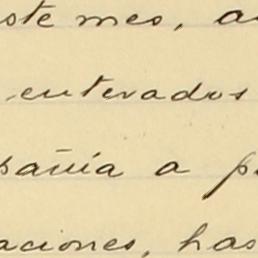 ste mes, a
enterados
pañia a p
aciones, has